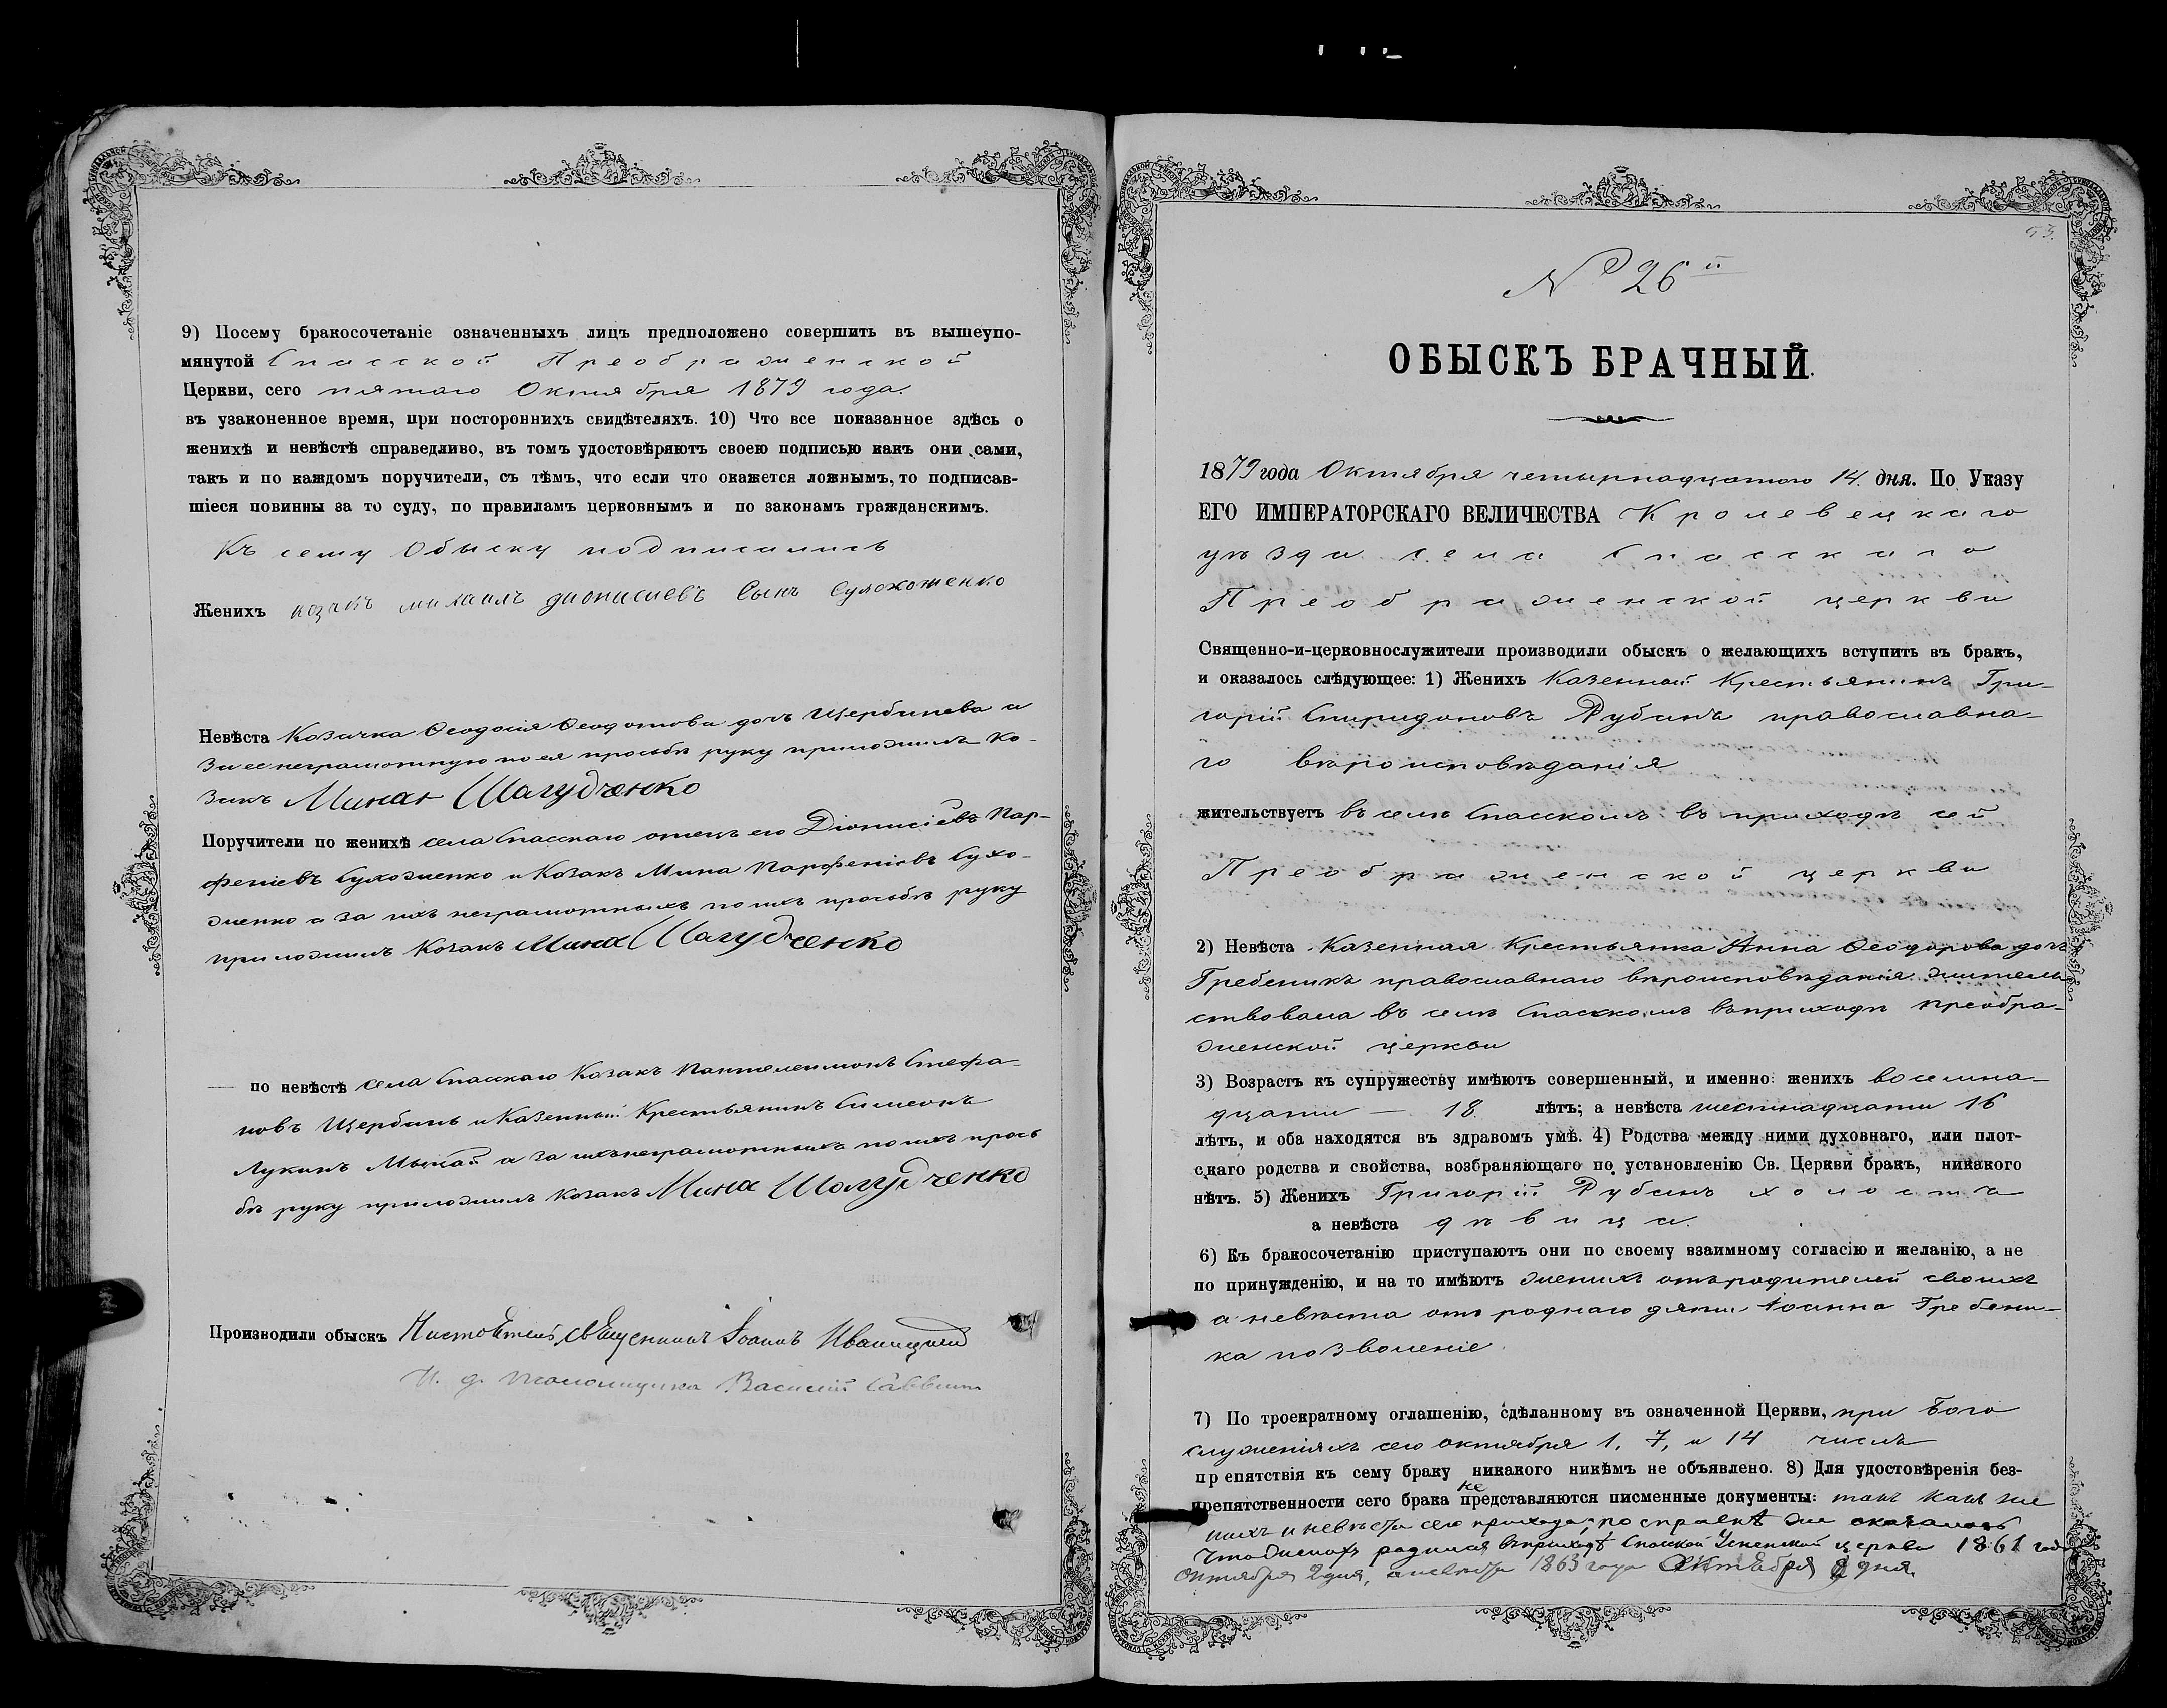 9) Посему бракосочетаніе означенныхъ лицъ предположено совершить въ вышеупо-
мянутой Спасской Преображенской
Церкви, сего пятаго Октября 1879 года.
въ узаконенное время, при постороннихъ свидѣтеляхъ. 10) Что все показанное здѣсь о
женихѣ и невѣстѣ справедливо, въ томъ удостовѣряютъ своею подписью какъ они сами,
такъ и по каждомъ поручители, съ тѣмъ, что если что окажется ложнымъ, то подписав-
шіеся повинны за то суду, по правиламъ церковнымъ и по законамъ гражданскимъ.
Къ сему Обыску подписались
Женихъ козакъ михаилъ дионисиевъ Сынъ Сухоженко
Невѣста Козачка Ѳеодосія Ѳеодотова дочь Щербинева а
за ее неграмотную по ея просьбѣ руку приложилъ Ко-
закъ Мина Шагудченко
Поручители по женихѣ села Спасскаго отецъ его Діонисіевъ Пар-
феніевъ Сухоженко и Козакъ Мина Парфеніевъ Сухо-
женко а за ихъ неграмотныхъ по ихъ просьбѣ руку
приложилъ Козакъ Мина Шагудченко
— по невѣстѣ села Спасскаго Козакъ Пантелеимонъ Стефа-
новъ Щербинъ и Казенный Крестьянинъ Симеонъ
Лукинъ а за ихъ неграмотныхъ по ихъ прось
бѣ руку приложилъ Козакъ Мина Шагудченко
Производили обыскъ Настоятель, Священникъ Іоаннъ Иваницкій
И. д. Псаломщика Василій Саввин
93.
№ 26й
ОБЫСКЪ БРАЧНЫЙ.
1879 года Октября четырнадцатого 14. дня. По Указу
ЕГО ИМПЕРАТОРСКАГО ВЕЛИЧЕСТВА Кролевецкаго
уѣзда села Спасскаго
Преображенской церкви
Священно-и-церковнослужители производили обыскъ о желающихъ вступить въ бракъ,
и оказалось слѣдующее: 1) Женихъ Казенный Крестьянинъ Гри-
горій Спиридоновъ Рубанъ православна-
го вѣроисповѣданія
жительствуетъ въ селѣ Спасскомъ въ приходѣ сей
Преображенской церкви
2) Невѣста Казенная Крестьянка Анна Ѳеодорова дочь
Гребеникъ православнаго вѣроисповѣданія жительс
ствовала въ селѣ Спасскомъ въ приходѣ Преобра-
женской церкви
3) Возрастъ къ супружеству имѣютъ совершенный, и именно: женихъ восемна-
дцати — 18. лѣтъ; а невѣста шестнадцати 16
лѣтъ, и оба находятся въ здравомъ умѣ. 4) Родства между ними духовнаго, или плот-
скаго родства и свойства, возбраняющаго по установленію Св. Церкви бракъ, никакого
нѣтъ. 5) Женихъ Григорій Рубанъ холостъ
а невѣста дѣвица.
6) Къ бракосочетанію приступаютъ они по своему взаимному согласію и желанію, а не
по принужденію, и на то имѣютъ женихъ отъ родителей своихъ
а невѣста отъ роднаго дяди Іоанна Гребени-
ка позволеніе.
7) По троекратному оглашенію, сдѣланному въ означенной Церкви, при Бого
служеніяхъ сего октября 1, 7, и 14 числъ
препятствія къ сему браку никакого никѣмъ не объявлено. 8) Для удостовѣренія без-
препятственности сего брака не представляются писменные документы: такъ какъ же
нихъ и невѣста сего прихода; по справкѣ же оказалось
что женихъ родился въ приходѣ Спасской Успенской церкви 1861 года
Октября 2 дня, а невѣста 1863 года Октября 9 дня